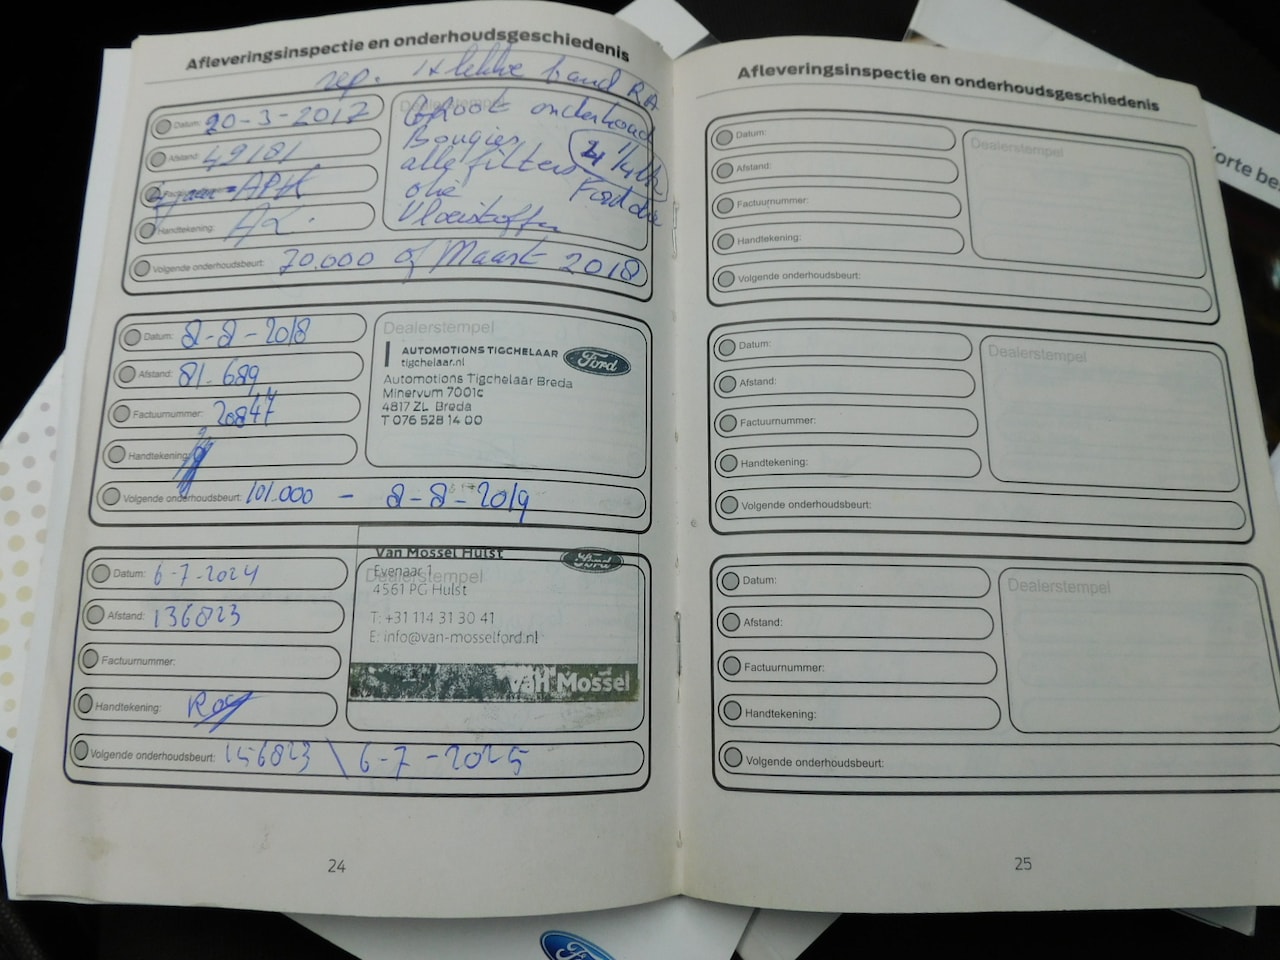 Afleveringsinspectie en onderhoudsgeschiedenis
rep. 1x lekke band RA
Datum: 20-3-2017
Dealerstempel
Groot onderhoud
Afstand: 49181
Bougies
alle filters
APK
olie
Ford olie
Handtekening:
Vloeistoffen
Volgende onderhoudsbeurt: 70.000 of Maart 2018
Datum: 8-8-2018
Dealerstempel
AUTOMOTIONS TIGCHELAAR
Ford
tigchelaar.nl
Automotions Tigchelaar Breda
Minervum 7001c
4817 ZL Breda
T 076 528 14 00
Afstand: 81.689
Factuurnummer: 20847
Handtekening:
Volgende onderhoudsbeurt: 101.000 - 8-8-2019
Van Mossel Hulst
Ford
Evenaar 1
Dealerstempel
4561 PG Hulst
T: +31 114 31 30 41
E: info@van-mosselford.nl
van Mossel
Datum: 6-7-2024
Afstand: 136823
Factuurnummer:
Handtekening:
Volgende onderhoudsbeurt: 156823 \ 6-7-2025
24
Afleveringsinspectie en onderhoudsgeschiedenis
Datum:
Dealerstempel
Afstand:
Factuurnummer:
Handtekening:
Volgende onderhoudsbeurt:
Datum:
Dealerstempel
Afstand:
Factuurnummer:
Handtekening:
Volgende onderhoudsbeurt:
Datum:
Dealerstempel
Afstand:
Factuurnummer:
Handtekening:
Volgende onderhoudsbeurt:
25